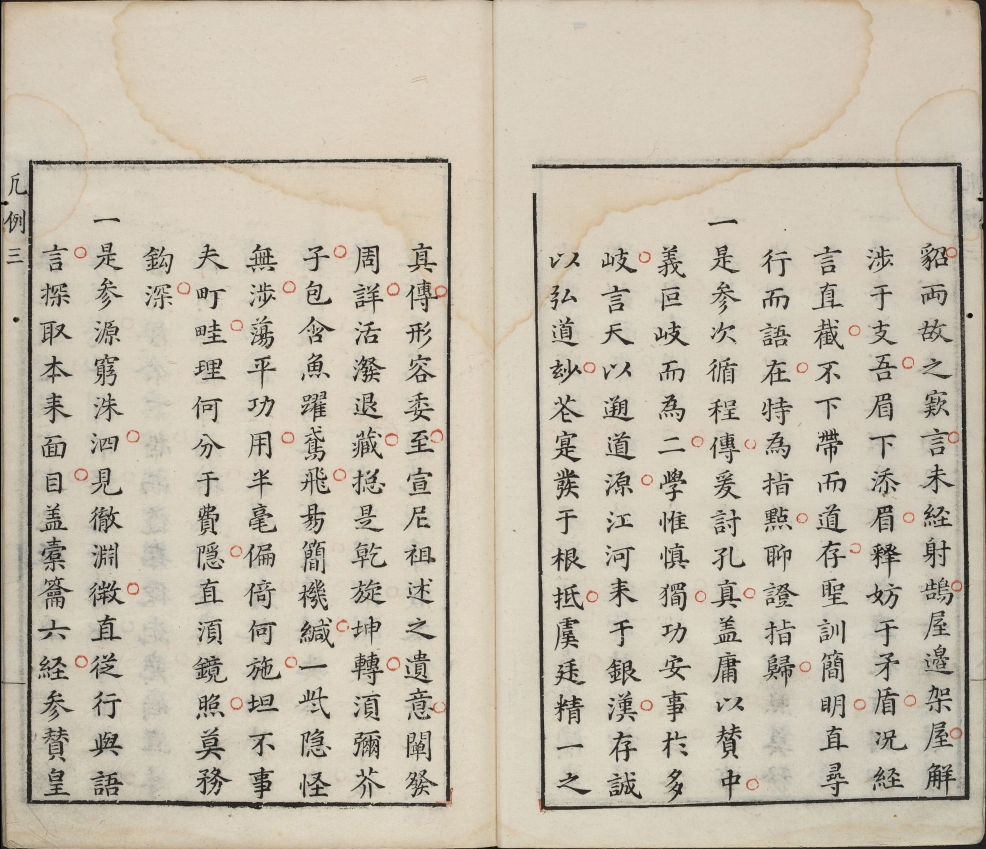 貂両故之欵言未経射鵠屋邉架屋解
涉于支吾眉下添眉釋妨于矛盾况経
言直截不下帶而道存聖訓簡明直尋
行而語在特為指㸃聊證指歸
一是参次循程傳爰討孔真盖庸以賛中
義叵岐而為二學惟慎獨功安事扵多
岐言天以遡道源江河耒于銀漢存誠
以弘道玅苍寔彂于根抵虞廷精一之
真傳形容委至宣尼祖述之遺意闡發
周詳活潑退藏捴是乾旋坤轉湏彌芥
子包含魚躍鳶飛昜簡機緘一㪽隐怪
無涉蕩平功用半毫偏倚何施坦不事
夫町畦理何分于費隱直湏鏡照莫務
鈎深
一是参源窮洙泗見徹淵微直從行與語
言探取本耒面目盖橐籥六経参賛皇
凡例 三